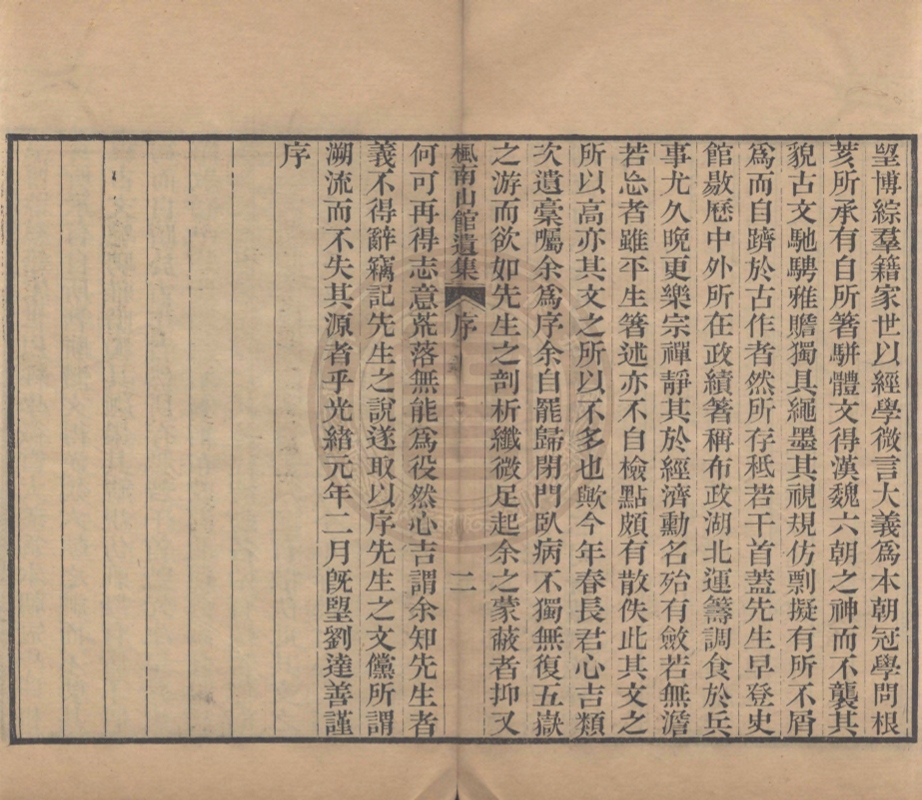 朢博綜羣籍家世以經學微言大義爲本朝冠學問根
荄所承有自所箸駢體文得漢魏六朝之神而不襲其
貌古文馳騁雅贍獨具繩墨其視規仿剽擬有所不屑
爲而自躋於古作者然所存秖若干首蓋先生早登史
館敭歷中外所在政績箸稱布政湖北運籌調食於兵
事尤久晚更樂宗禪靜其於經濟勳名殆有斂若無澹
若忘者雖平生箸述亦不自檢點頗有散佚此其文之
所以高亦其文之所以不多也歟今年春長君心吉類
次遺稾囑余爲序余自罷歸閉門臥病不獨無復五嶽
之游而欲如先生之剖析纖微足起余之蒙蔽者抑又
楓南山館遺集 序 二
何可再得志意荒落無能爲役然心吉謂余知先生者
義不得辭竊記先生之說遂取以序先生之文儻所謂
溯流而不失其源者乎光緒元年二月旣朢劉達善謹
序